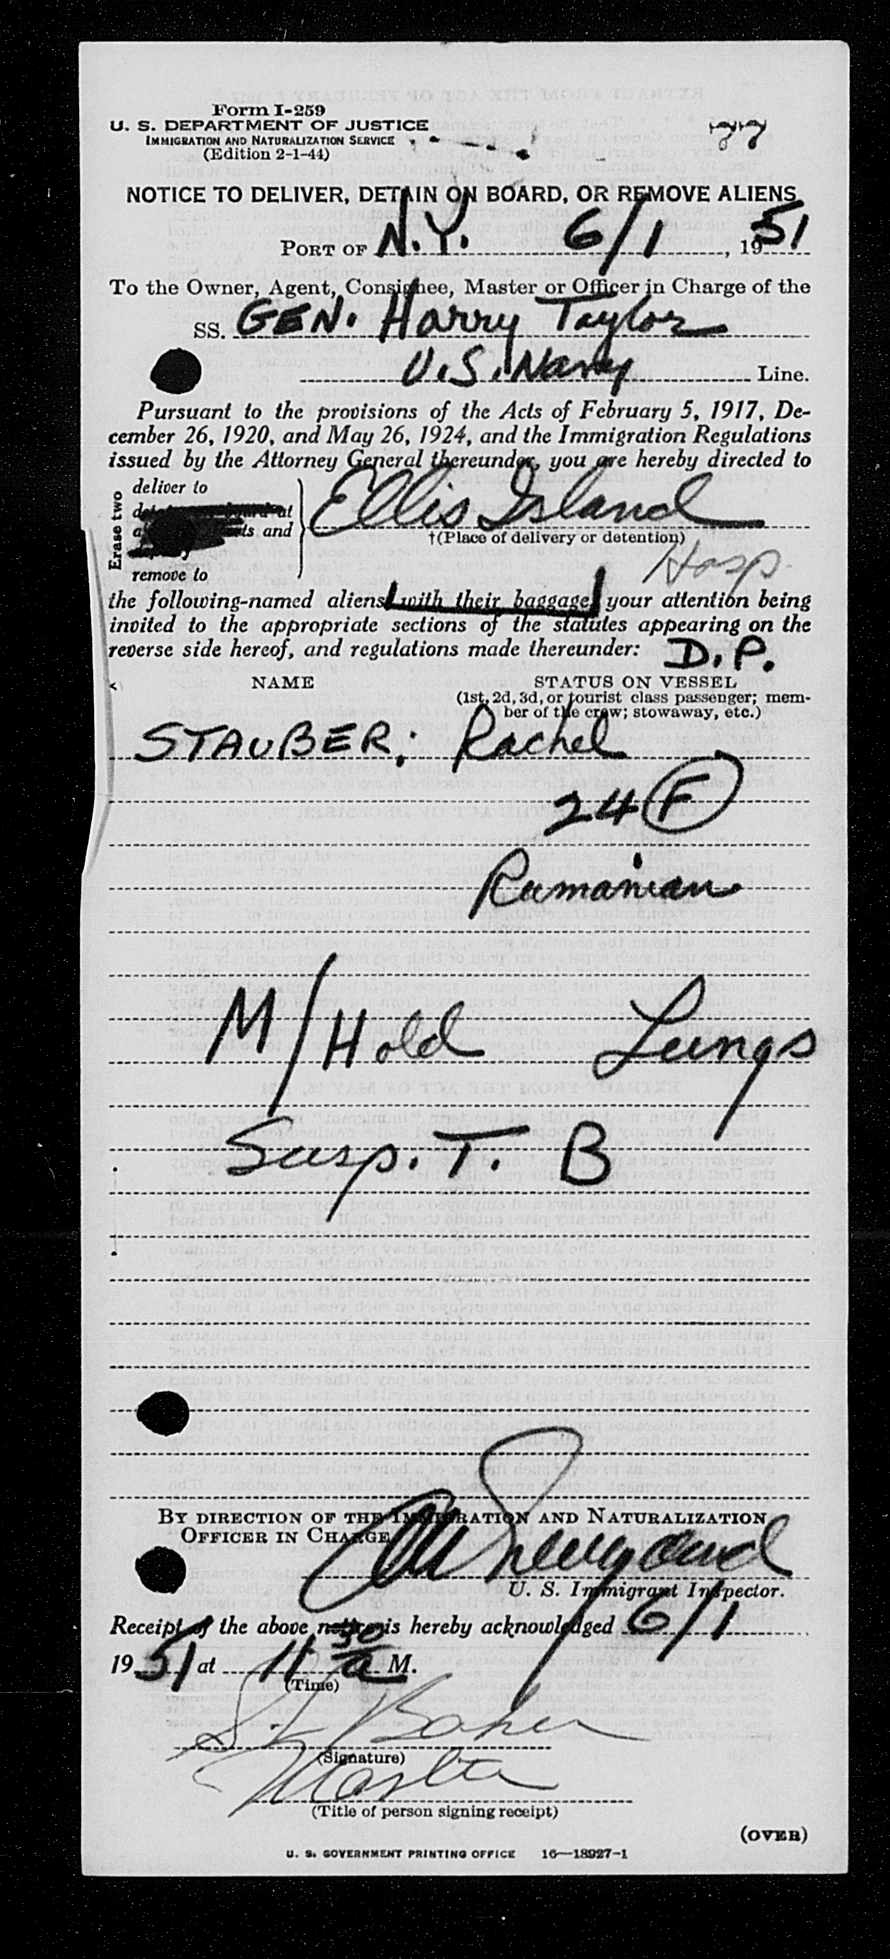 Form I-259
U. S. DEPARTMENT OF JUSTICE
IMMIGRATION AND NATURALIZATION SERVICE
(Edition 2-1-44)
77
NOTICE TO DELIVER, DETAIN ON BOARD, OR REMOVE ALIENS
PORT OF N.Y. 6/1, 1951
To the Owner, Agent, Consignee, Master or Officer in Charge of the
SS. GEN. Harry Taylor
U.S. Navy Line.
Pursuant to the provisions of the Acts of February 5, 1917, De-
cember 26, 1920, and May 26, 1924, and the Immigration Regulations
issued by the Attorney General thereunder, you are hereby directed to
Erase two
deliver to
Ellis Island
ts and
†(Place of delivery or detention)
remove to
Hosp.
the following-named aliens with their baggage, your attention being
invited to the appropriate sections of the statutes appearing on the
reverse side hereof, and regulations made thereunder: D.P.
NAME STATUS ON VESSEL
(1st, 2d, 3d, or tourist class passenger; mem-
ber of the crew; stowaway, etc.)
STAUBER: Rachel
24 F
Rumanian
M/Hold Lungs
Susp. T. B
BY DIRECTION OF THE IMMIGRATION AND NATURALIZATION
OFFICER IN CHARGE
U. S. Immigrant Inspector.
Receipt of the above notice is hereby acknowledged 6/1
1951 at 11 30 a M.
(Time)
S. L. Baker
(Signature)
Master
(Title of person signing receipt)
(OVER)
U. S. GOVERNMENT PRINTING OFFICE 16—18927-1